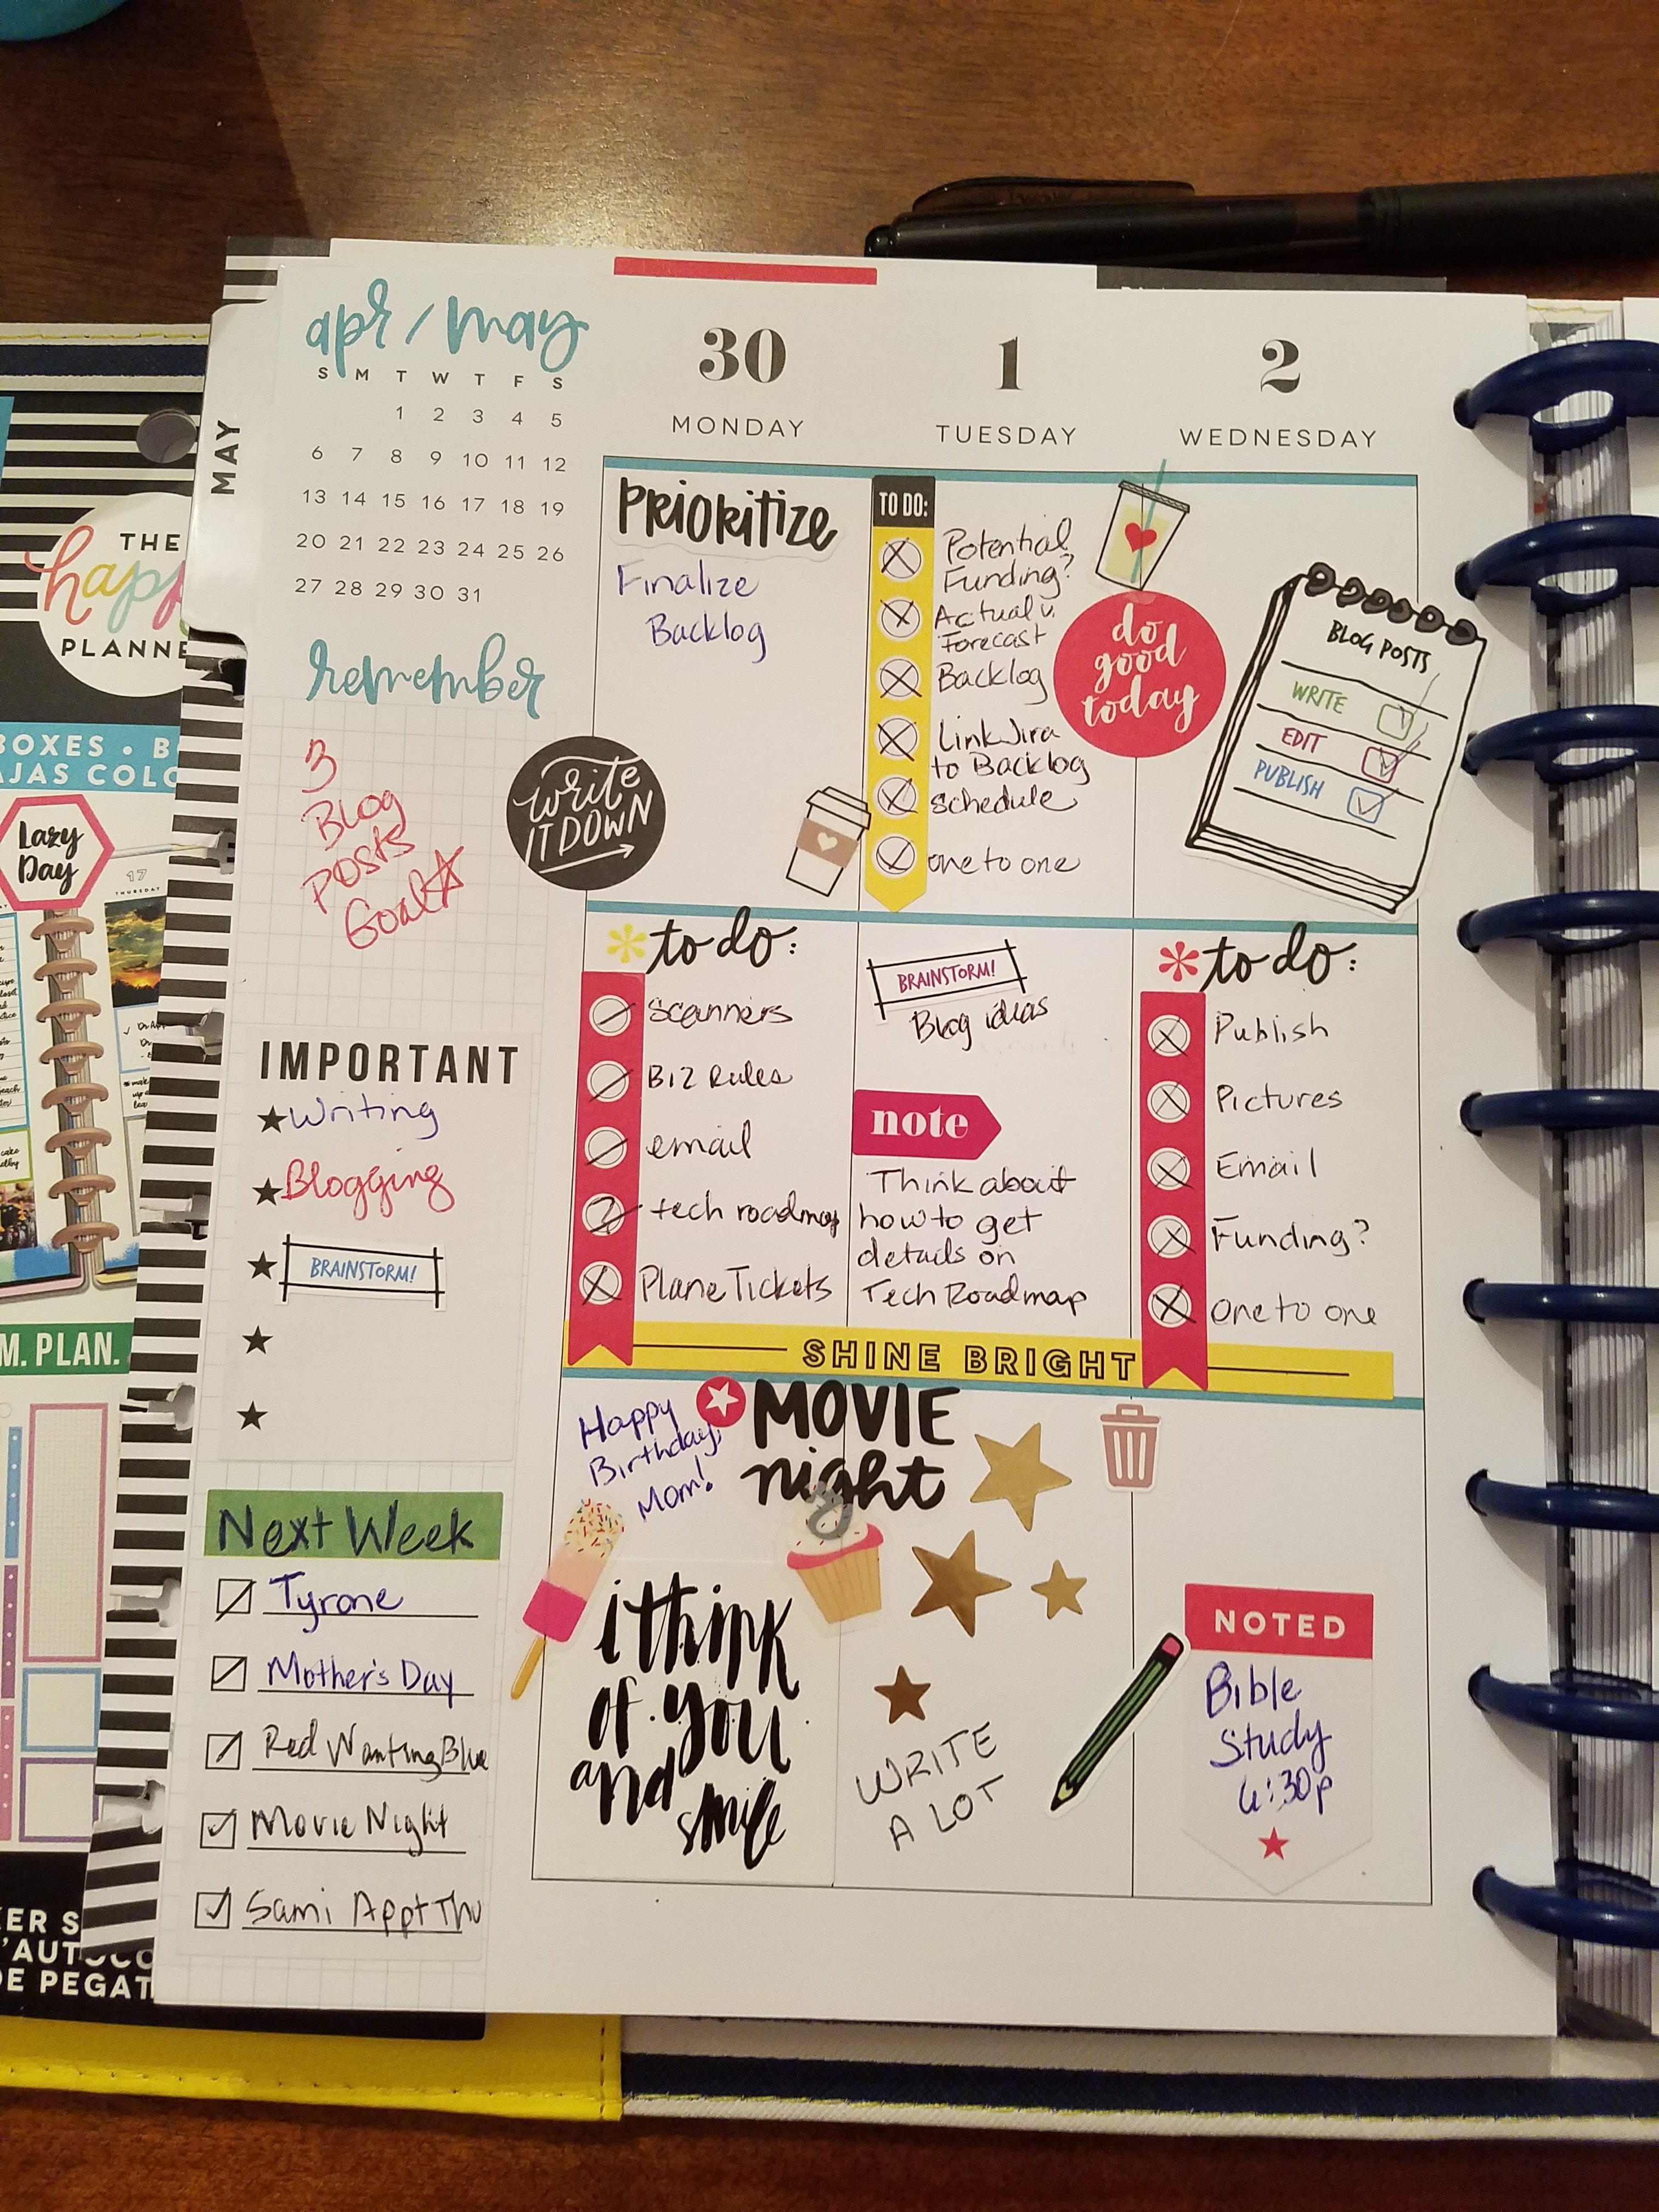 apr/may
S M T W T F S
1 2 3 4 5
6 7 8 9 10 11 12
13 14 15 16 17 18 19
20 21 22 23 24 25 26
27 28 29 30 31
MAY
remember
3
Blog
Posts
Goal
write
IT DOWN
IMPORTANT
Writing
Blogging
BRAINSTORM!
Next Week
Tyrone
Mother's Day
Red Wanting Blue
Movie Night
Sami Appt Thu
30
MONDAY
PRIORITIZE
Finalize
Backlog
to do:
Scanners
Biz Rules
email
tech roadmap
Plane Tickets
SHINE BRIGHT
Happy
Birthday,
Mom!
MOVIE
night
i think
of you
and
smile
1
TUESDAY
TO DO:
Potential
Funding?
Actual v.
Forecast
Backlog
Link Jira
to Backlog
Schedule
one to one
do
good
today
BRAINSTORM!
Blog ideas
note
Think about
how to get
details on
Tech Roadmap
WRITE
A LOT
2
WEDNESDAY
BLOG POSTS
WRITE
EDIT
PUBLISH
to do:
Publish
Pictures
Email
Funding?
One to one
NOTED
Bible
Study
6:30p
THE
happ
PLANNE
BOXES • B
AJAS COLO
Lazy
Day
17
THURSDAY
M. PLAN.
ER S
'AUTOCO
DE PEGAT